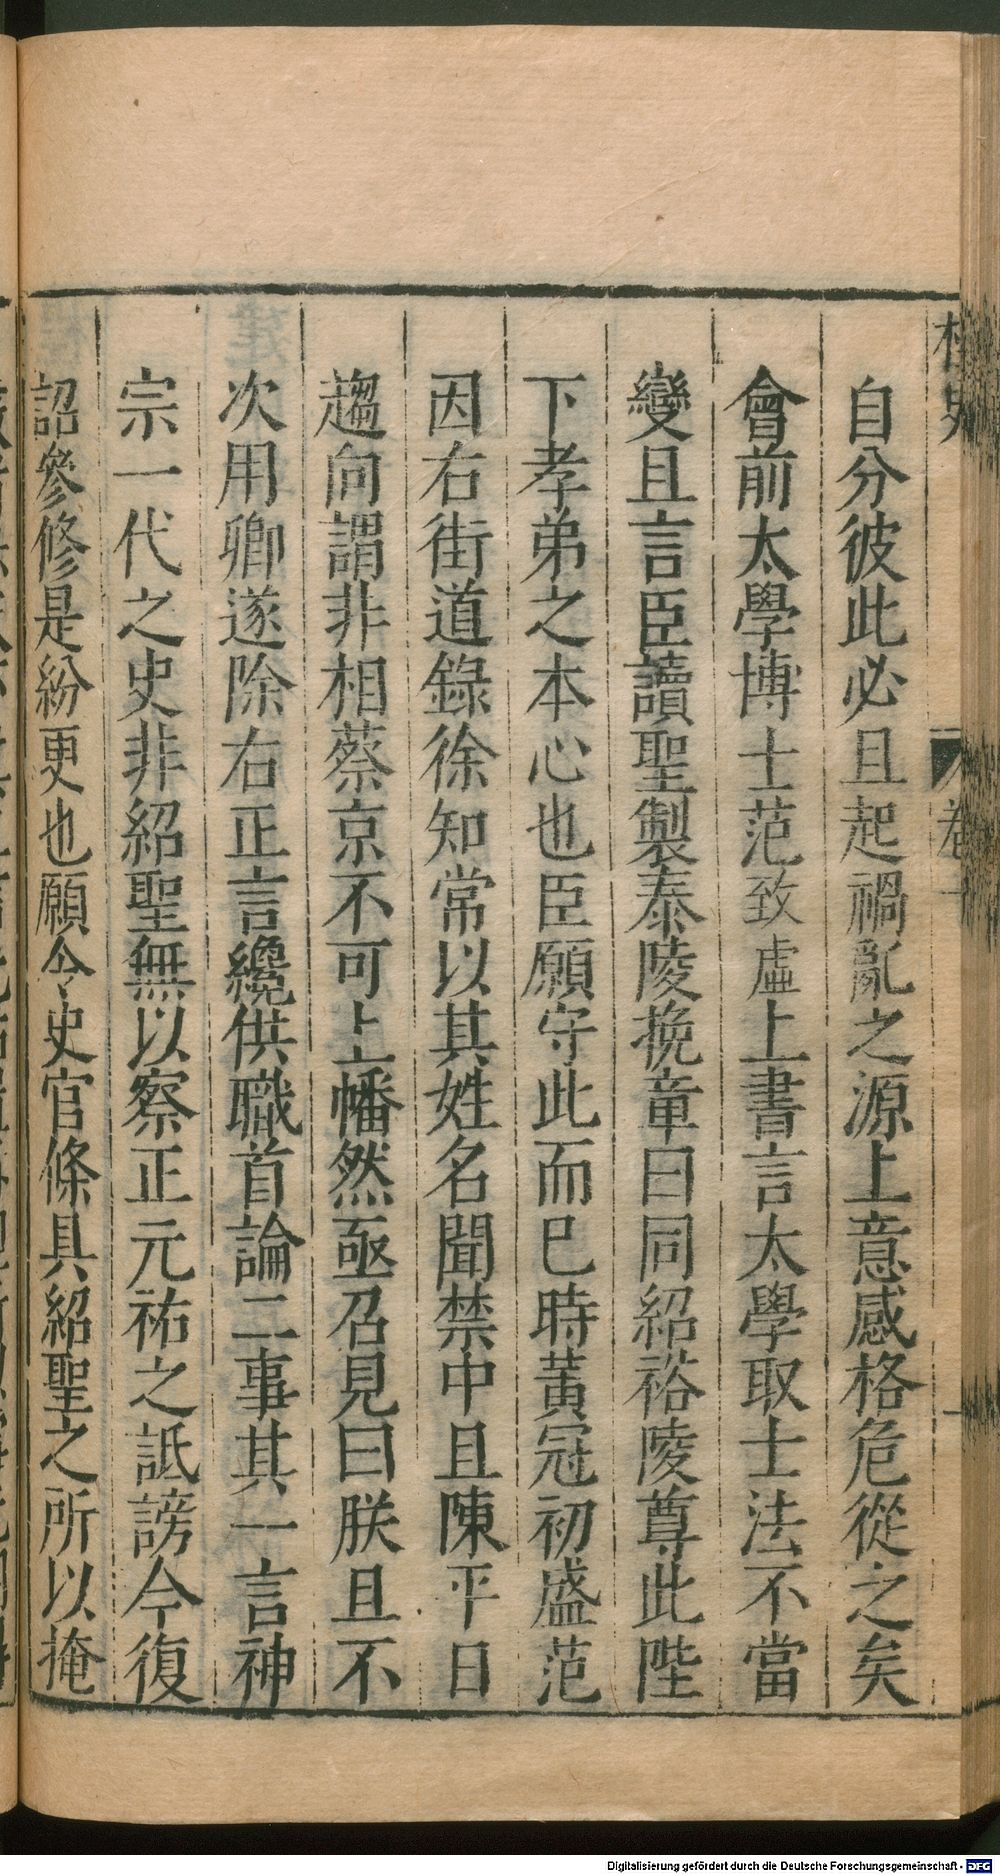 自分彼此必且起禍亂之源上意感格危從之矣
會前太學博士范致虛上書言太學取士法不當
變且言臣讀聖製泰陵挽章曰同紹裕陵尊此陛
下孝弟之本心也臣願守此而已時黃冠初盛范
因右街道錄徐知常以其姓名聞禁中且陳平日
趨向謂非相蔡京不可上幡然亟召見曰朕且不
次用卿遂除右正言纔供職首論二事其一言神
宗一代之史非紹聖無以察正元祐之詆謗今復
詔參修是紛更也願令史官條具紹聖之所以掩
Digitalisierung gefördert durch die Deutsche Forschungsgemeinschaft - DFG